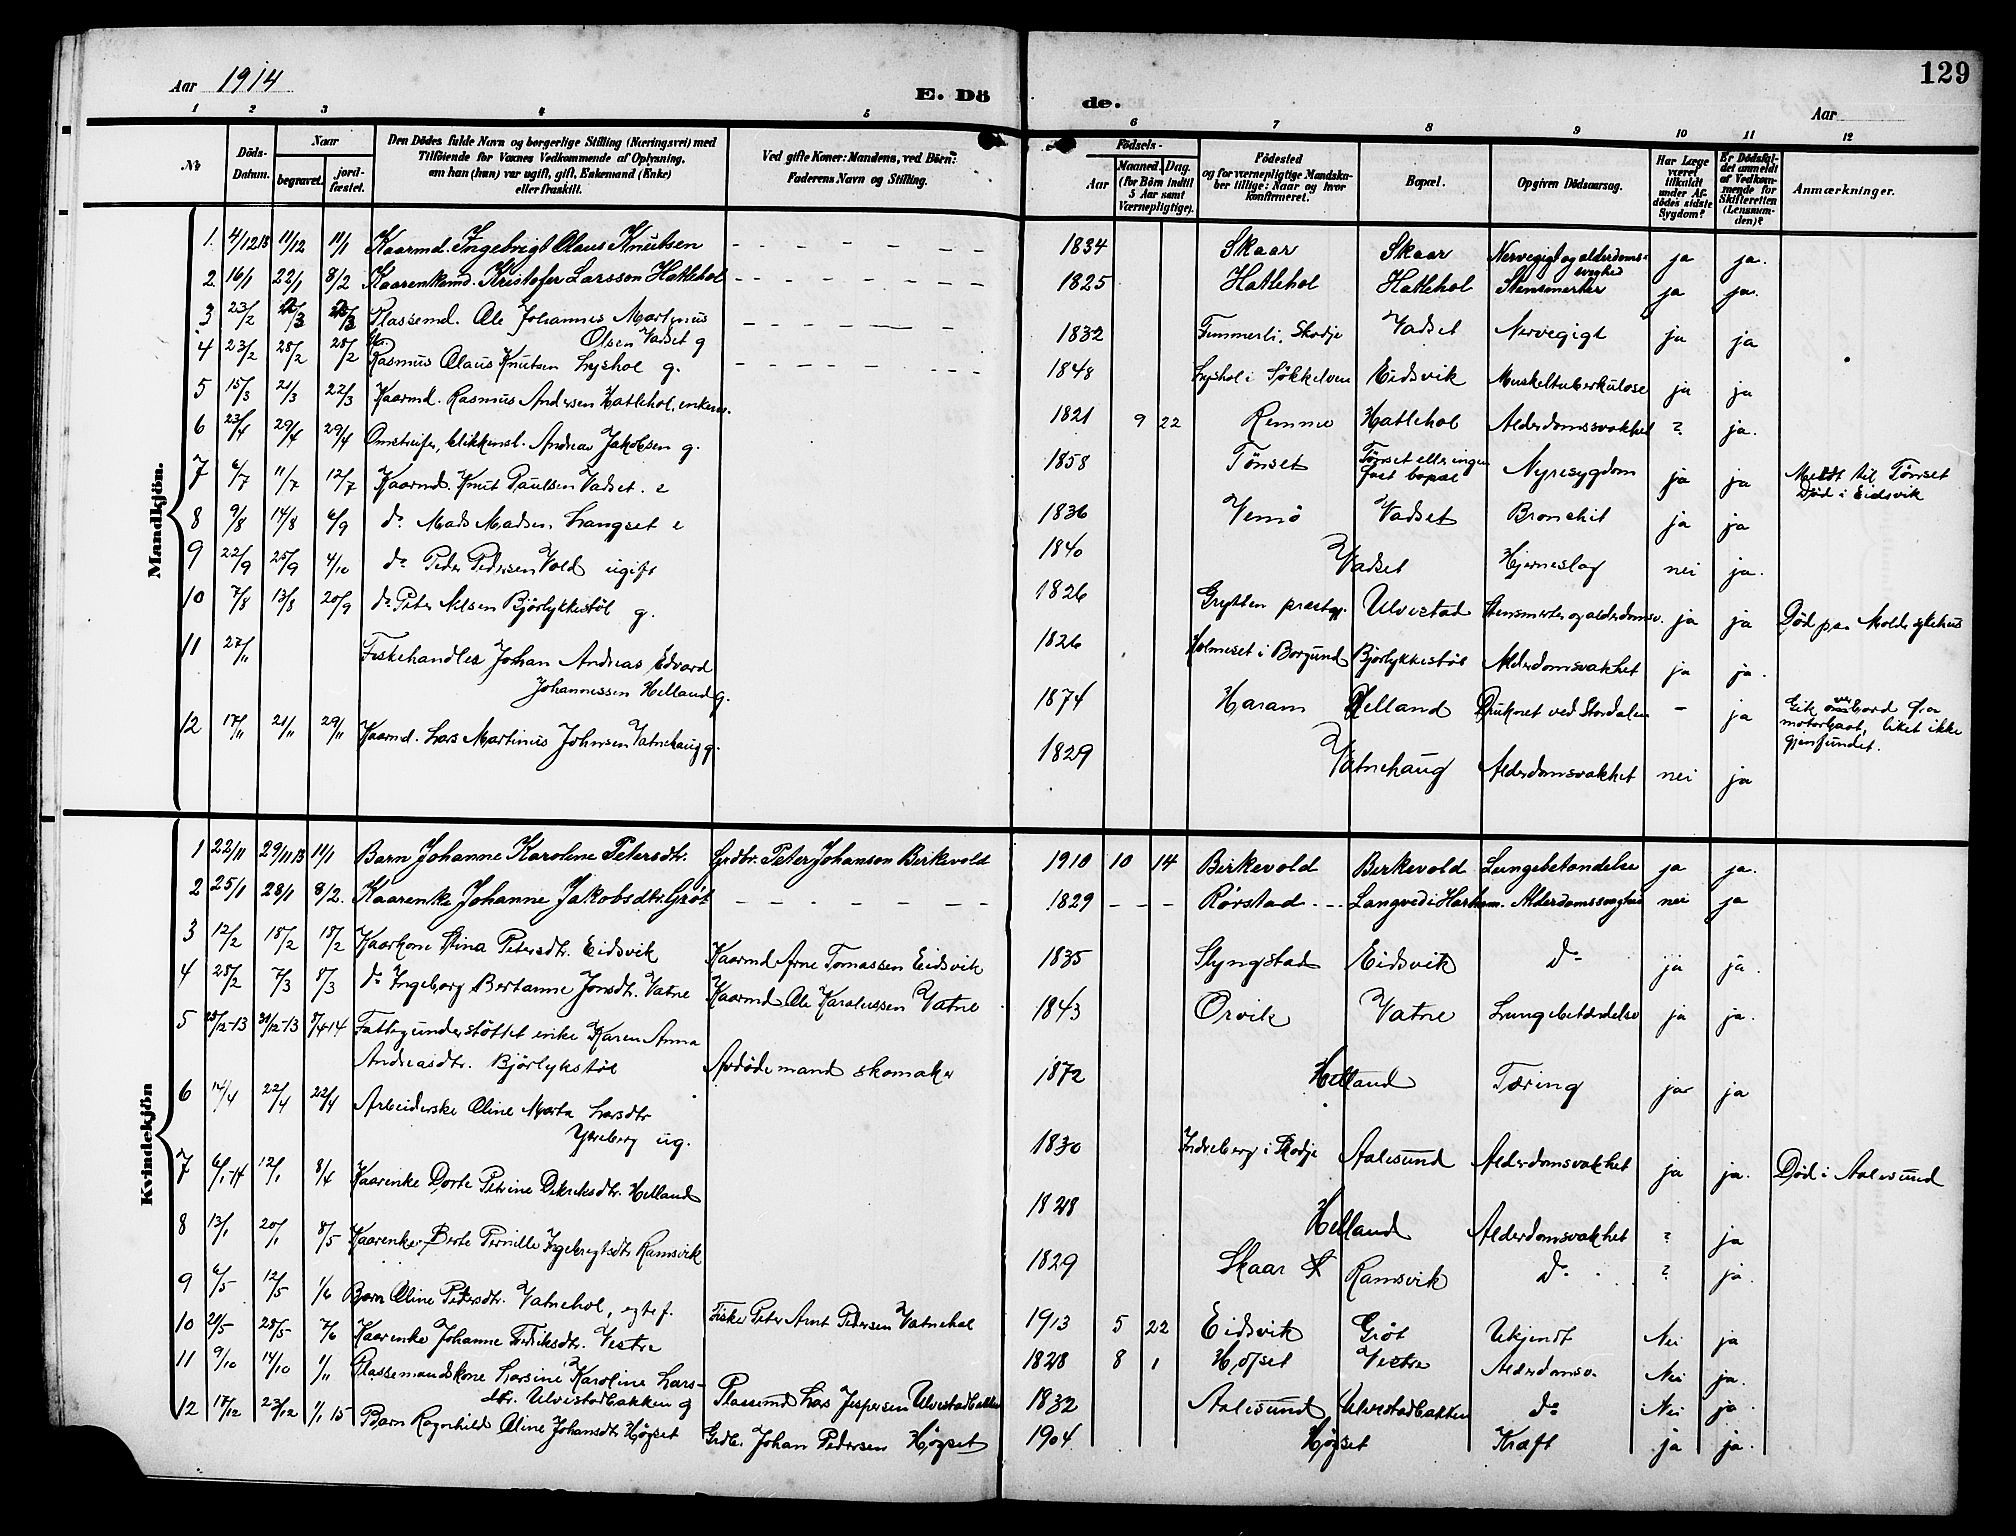 Aar 1914
E. Dö
de.
129
Aar
1 2 3 4 5 6 7 8 9 10 11 12
No
Döds-Datum.
Naar
begravet.
jord-fæstet.
Den Dödes fulde Navn og borgerlige Stilling (Næringsvei) med
Tilföiende for Voxnes Vedkommende af Oplysning,
om han (hun) var ugift, gift, Enkemand (Enke)
eller fraskilt.
Ved gifte Koner: Mandens, ved Börn:
Faderens Navn og Stilling.
Födsels-
Aar
Maaned. Dag.
(for Börn indtil
5 Aar samt
Værnepligtige).
Födested
og for værnepligtige Mandska-
ber tillige: Naar og hvor
konfirmeret.
Bopæl.
Opgiven Dödsaarsag.
Har Læge
været
tilkaldt
under Af-
dödes sidste
Sygdom?
Er Dödsfal-
det anmeldt
af Vedkom-
mende for
Skifteretten
(Lensman-
den)?
Anmærkninger.
Mandkjön.
1. 4/12 13 11/12 11/1 Kaarmd. Ingebrigt Olaus Knutsen 1834 Skaar Skaar Nervegigt og alderdoms-svaghed ja ja.
2 16/1 22/1 8/2 Kaarenkemd. Kristofer Larsson Hatlehol 1825 Hatlehol Hatlehol Stensmerter ja ja.
3 23/2 Plassemd. Ole Johannes Martinus
Olsen Vadset g 1832 Timmerli, Skodje Vadset Nervegigt ja ja
4 23/2 28/2 28/2 Rasmus Olaus Knutsen Lyshol g. 1848 Lyshol i Søkkelven Eidsvik Muskeltuberkulose ja ja
5 15/3 21/3 22/3 Kaarmd. Rasmus Andersen Hatlehol, enkem. 1821 9 22 Remme Hatlehol Alderdomssvakhet ? ja.
6 23/4 29/4 29/4 Omstreifer, blikkensl. Andreas Jakobsen g. 1858 Tönset Tönset eller ingen
fast bopæl Nyresygdom ja ja Meldt til Tönset
Död i Eidsvik
7 6/7 11/7 12/7 Kaarmd. Knut Paulsen Vadset. e 1836 Vemö Vadset Bronchit ja ja
8 9/8 14/8 6/9 do Mads Madsen Langset e 1840 Vadset Hjerneslag nei ja.
9 22/9 25/9 4/10 do Peder Pedersen Vold ugift 1826 Grytten præstgj. Ulvestad Stensmerter og alderdomsv. ja ja Död paa Molde sykehus
10 7/8 13/8 20/9 do Peter Nilsen Björlykkestöl g. 1826 Holmeset i Borgund Björlykkestöl Alderdomsvakhet ja ja.
11 27/11 Fiskehandler Johan Andreas Edvard
Johannessen Helland g. 1874 Haram Helland Druknet ved Stordalen - ja Gik overbord fra
motorbaat, liket ikke
gjenfundet.
12 17/11 21/11 29/11 Kaarmd. Lars Martinus Johnsen Vatnehaug g. 1829 Vatnehaug Alderdomsvakhet nei ja
Kvindekjön
1 22/11 29/11 13 11/1 Barn Johanne Karoline Petersdtr. Grdbr. Peter Johanson Birkevold 1910 10 14 Birkevold Birkevold Lungebetændelse ja ja.
2 25/1 28/1 8/2. Kaarenke Johanne Jakobsdtr. Gröt 1829 Rörstad Langved i Harham. Alderdomssvaghed nei ja
3 12/2 18/2 18/2 Kaarkone Stina Petersdtr. Eidsvik Kaarmd Arne Tomassen Eidsvik 1835 Slyngstad Eidsvik do ja ja.
4 28/2 7/3 8/3 do Ingeborg Bertanne Jonsdtr. Vatne Kaarmd Ole Karolussen Vatne 1843 Orvik Vatne Lungebetændelse ja ja.
5 Fattigunderstöttet enke Karen Anna
Andreasdtr. Björlykstöl Avdöde mand skomaker 1872 Helland Tæring ja ja
6 14/4 22/4 22/4 Arbeiderske Oline Marta Larsdtr
Ytreberg ug. 1830 Indreberg i Skodje Aalesund Alderdomsvakhet ja ja. Död i Aalesund
7 6/1-14 12/1 8/4 Kaarenke Dorte Petrine Diriksdtr. Helland 1828 Helland Alderdomsvakhet ? ja
8 13/1 20/1 8/5 Kaarenke Berte Pernille Ingebrigtsdtr Ramsvik 1829 Skaar Ramsvik do ? ja.
9 6/5 12/5 1/6 Barn Oline Petersdtr. Vatnehol, egtef. Fisker Peter Arnt Pedersen Vatnehol 1913 5 22 Eidsvik Gröt Ukjendt Nei ja
10 28/5 7/6 Kaarenke Johanne Fidiksdtr. Vestre 1828 8 1 Hofset Vestre Alderdomsv. Nei ja.
11 9/10 14/10 1/11 Plassemandskone Larsine Karoline Lars-
dtr. Ulvestadbakken g Plassemd Lars Jespersen Ulvestadbakken 1832 Aalesund Ulvestadbakken do Nei ja.
12 17/12 23/12 1/1 15 Barn Ragnhild Oline Johansdtr. Högset Grdbr. Johan Pedersen Högset 1904 Högset Kræft ja ja.